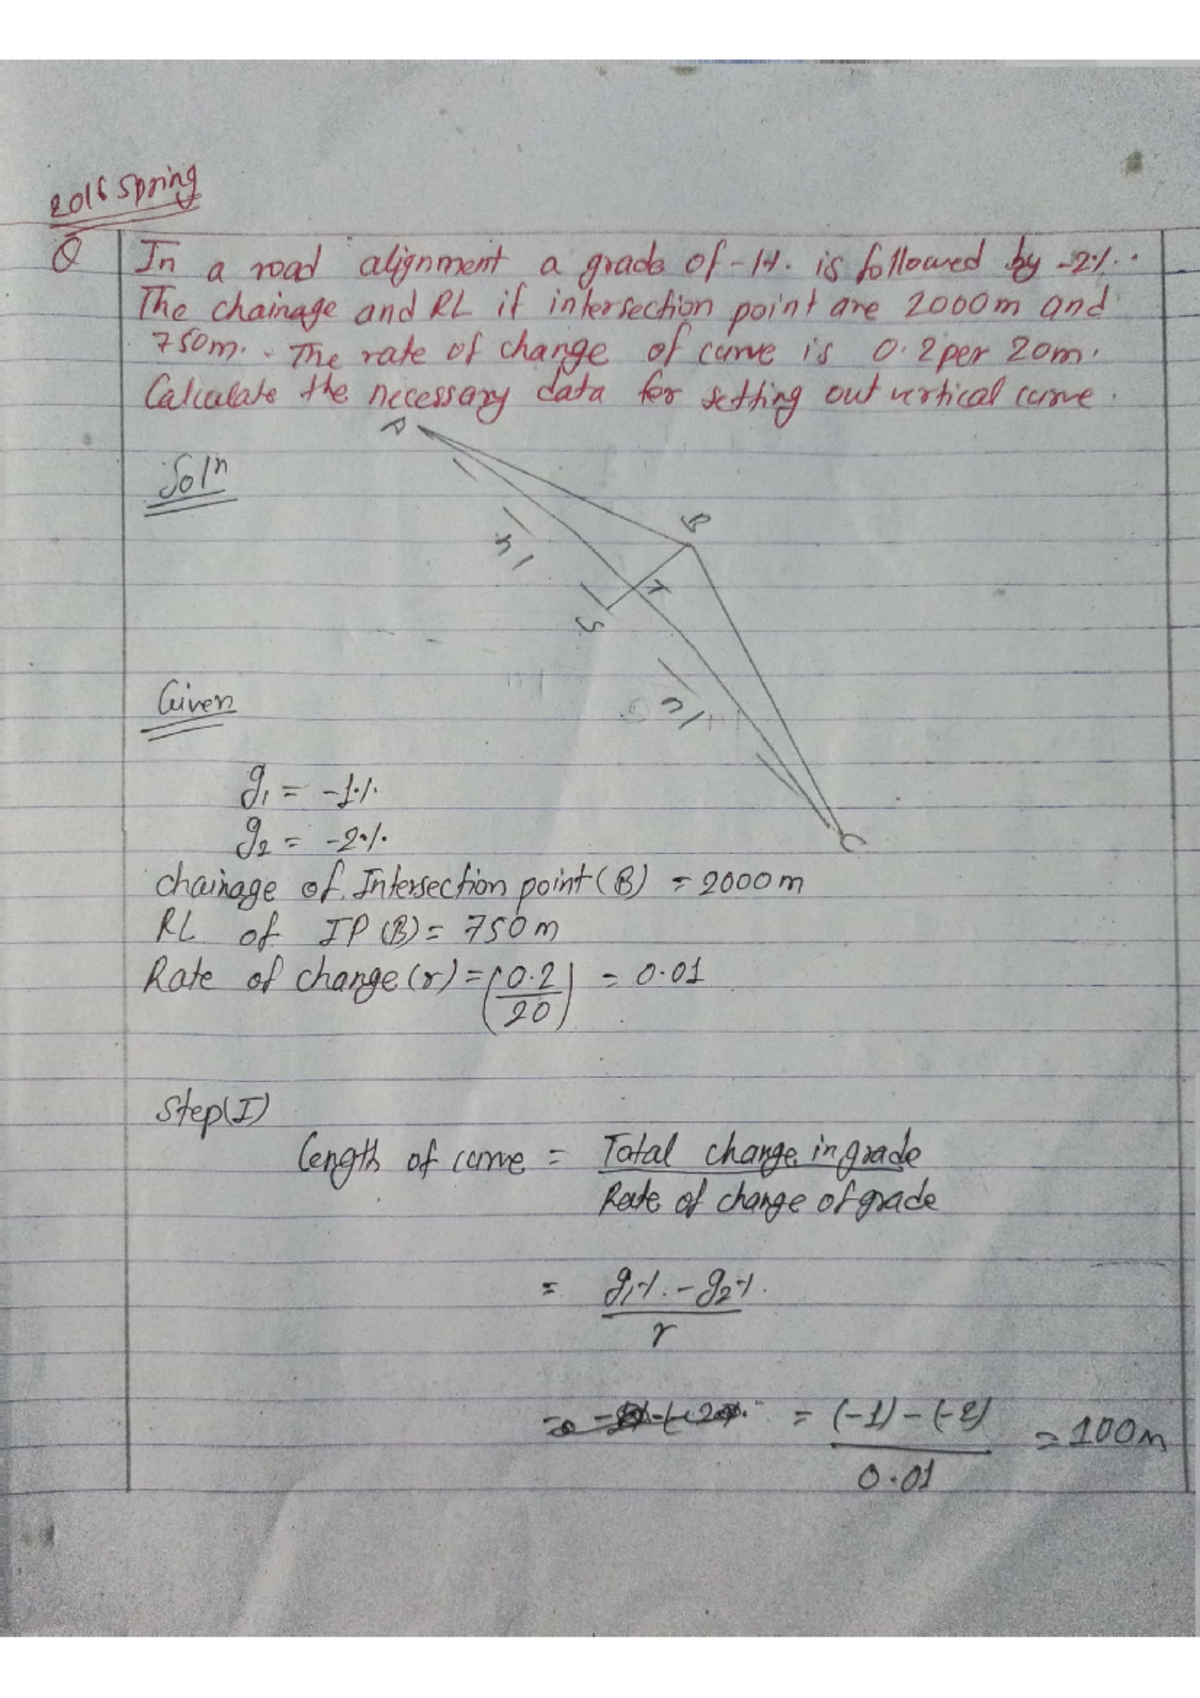 2016 spring
Q In a road alignment a grade of -1%. is followed by -2%.
The chainage and RL if intersection point are 2000m and
750m. The rate of change of curve is 0.2 per 20m.
Calculate the necessary data for setting out vertical curve.
Solⁿ
A
B
n/
F
S
n/
C
Given
g₁ = -1%.
g₂ = -2%.
chainage of Intersection point (B) = 2000m
RL of IP (B) = 750m
Rate of change (r) = (0.2/20) = 0.01
Step(I)
Length of curve = Total change in grade
Rate of change of grade
= g₁%. - g₂%.
r
= (-1) - (-2) = 100m
0.01